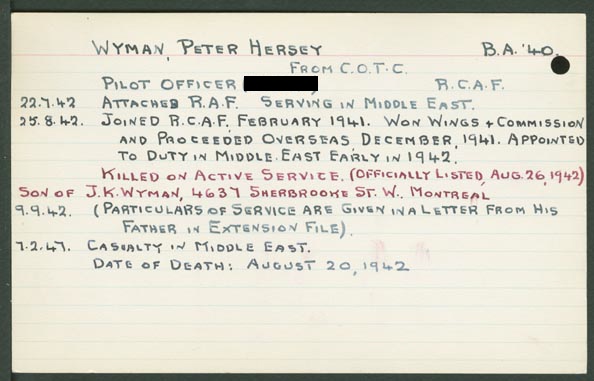 WYMAN, PETER HERSEY B.A. '40.
FROM C.O.T.C.
PILOT OFFICER R.C.A.F.
22.7.42 ATTACHED R.A.F. SERVING IN MIDDLE EAST.
25.8.42. JOINED R.C.A.F. FEBRUARY 1941. WON WINGS + COMMISSION
AND PROCEEDED OVERSEAS, DECEMBER, 1941. APPOINTED
TO DUTY IN MIDDLE EAST EARLY IN 1942.
KILLED ON ACTIVE SERVICE. (OFFICIALLY LISTED, AUG. 26, 1942)
SON OF J.K. WYMAN, 4637 SHERBROOKE ST. W. MONTREAL
9.9.42. (PARTICULARS OF SERVICE ARE GIVEN IN A LETTER FROM HIS
FATHER IN EXTENSION FILE).
7.2.47. CASUALTY IN MIDDLE EAST.
DATE OF DEATH: AUGUST 20, 1942